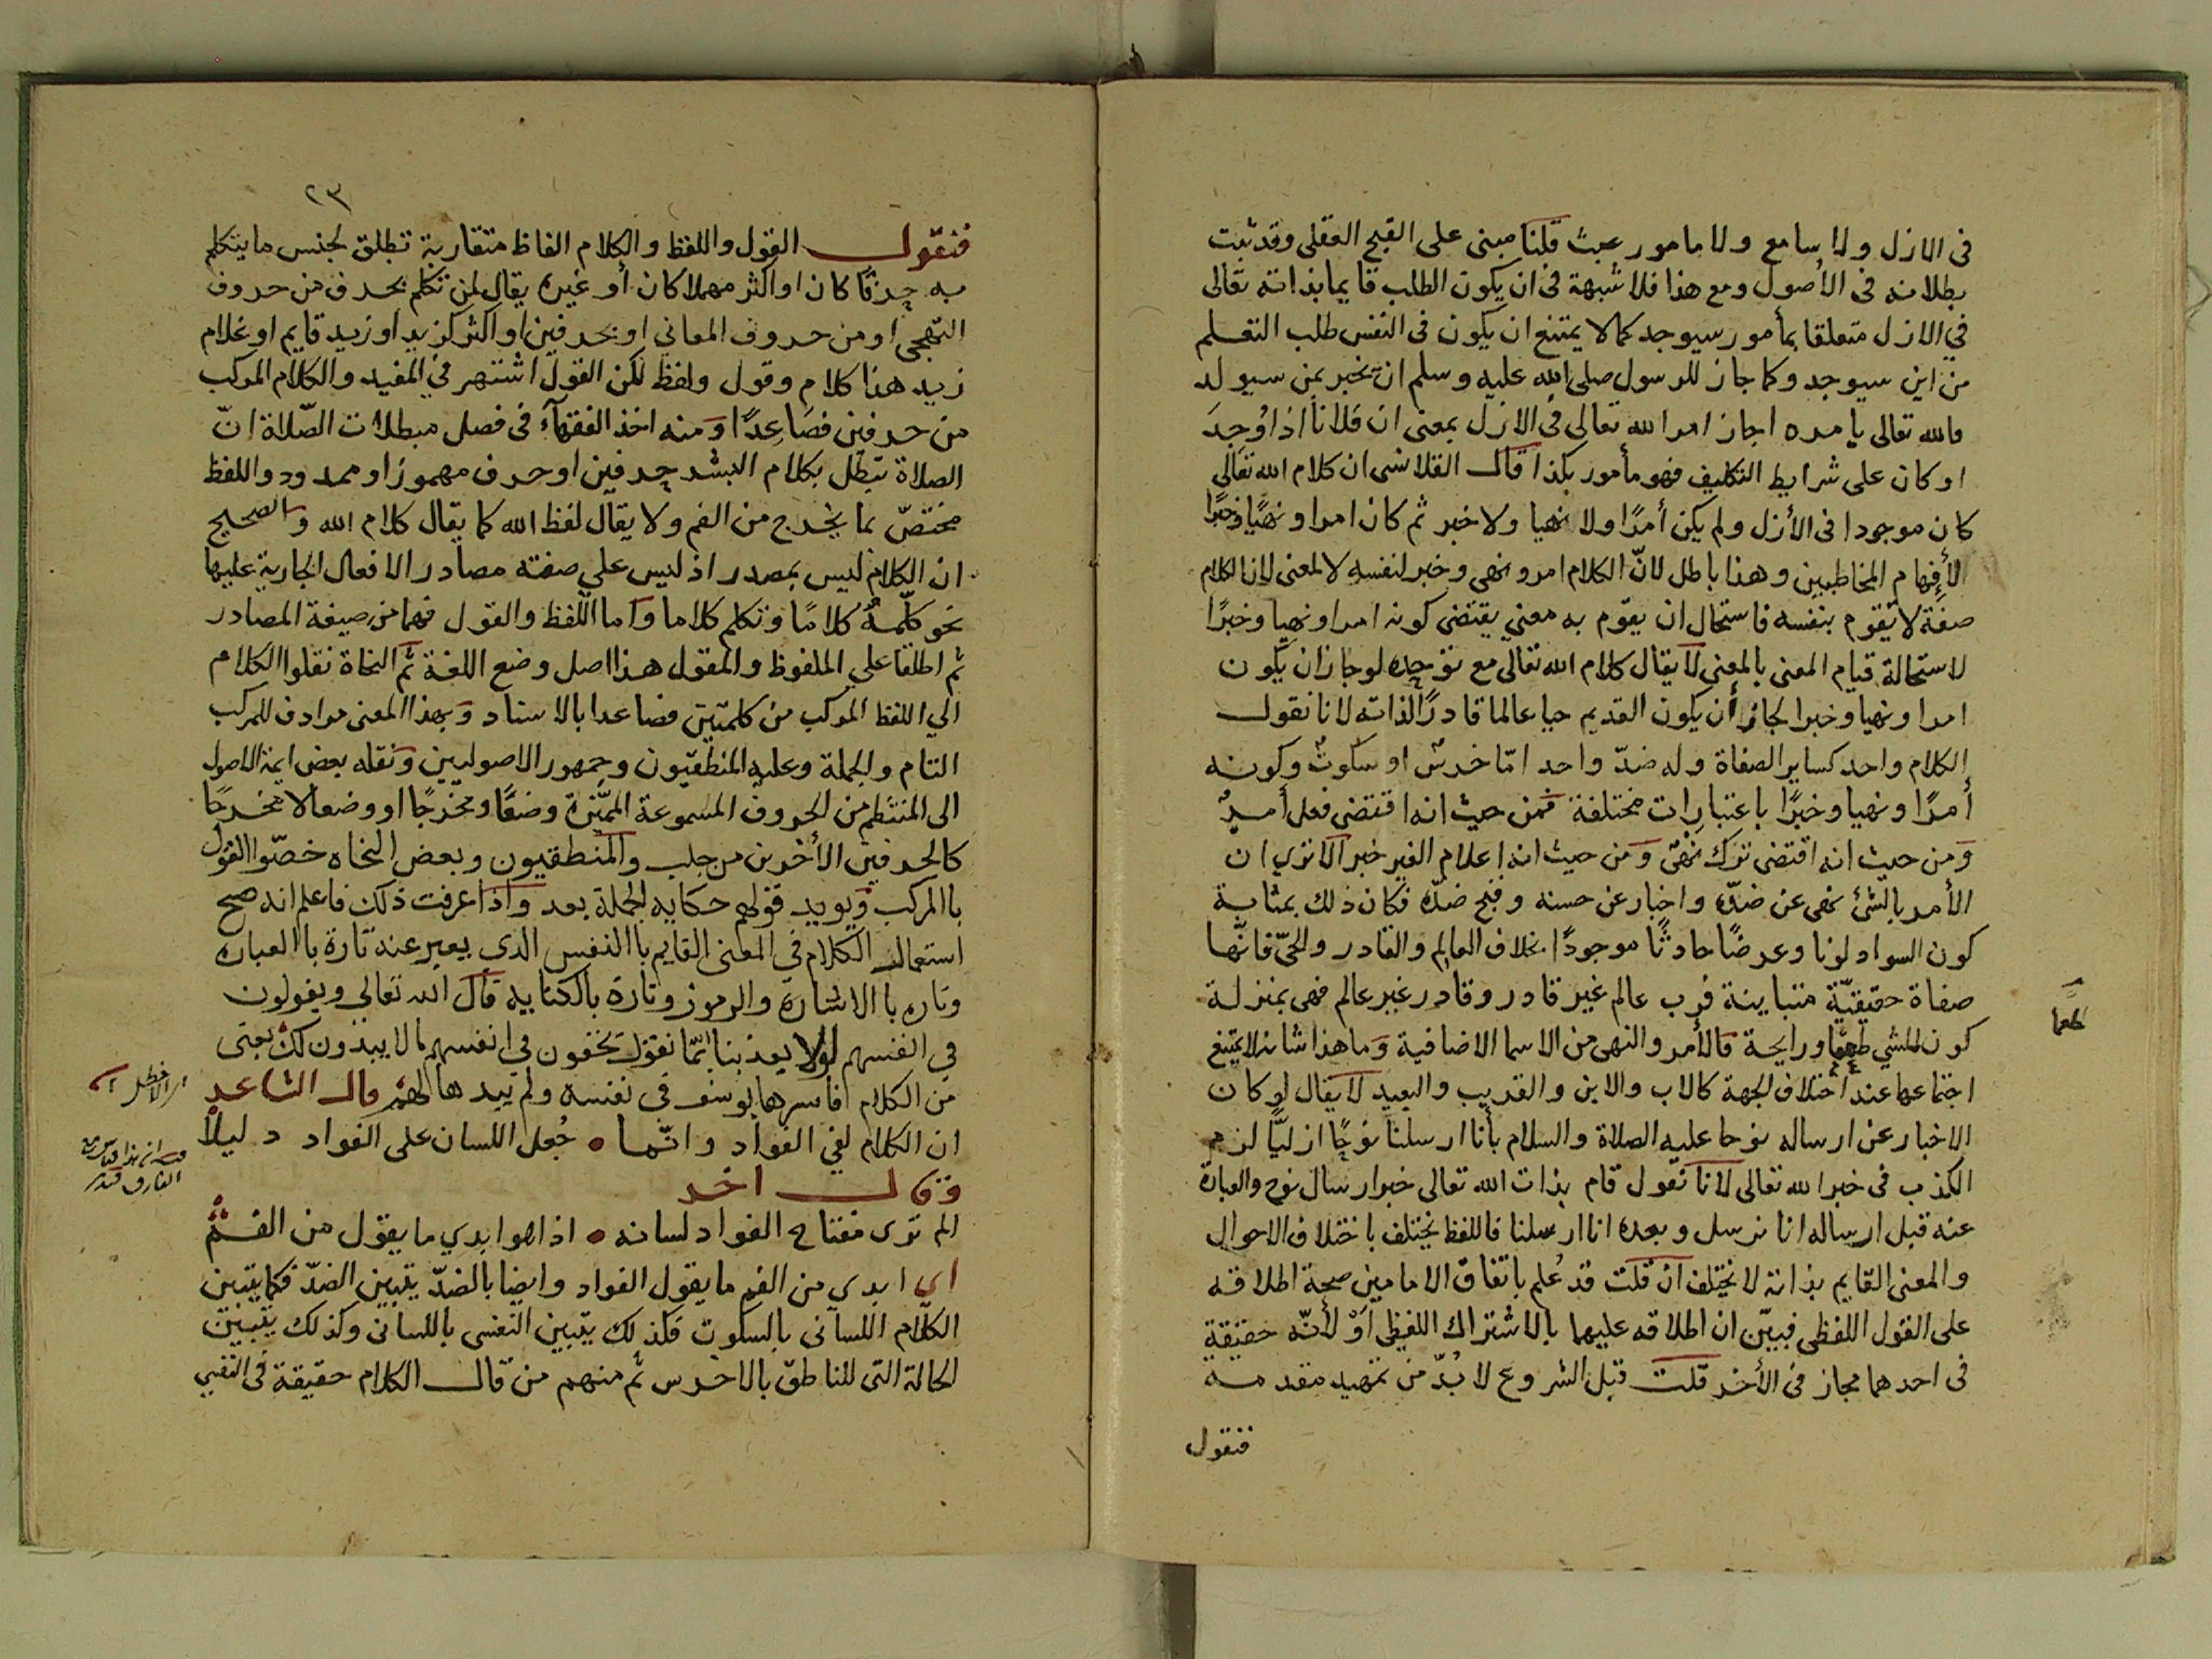 في الازل ولا سامع ولا مامور عبث قلنا مبنى على القبح العقلى وقد ثبت
بطلانه في الأصول ومع هذا فلا شبهة في ان يكون الطلب قايما بذاته تعالى
في الازل متعلقا بمأمور سيوجد كما لا يمتنع ان يكون في النفس طلب التعلم
من ابن سيوجد وكما جاز للرسول صلى الله عليه وسلم ان يخبر بمن سيولد
فالله تعالى يامره اجاز امر الله تعالى في الازل بمعنى ان فلانا اذا وُجِدَ
او كان على شرايط التكليف فهو مأمور بكذا قال القلانسى ان كلام الله تعالى
كان موجودا في الأزل ولم يكن أمرًا ولا نهيا ولا خبر ثم كان امرا ونهيًا وخبرًا
لأفهام المخاطبين وهذا باطل لانّ الكلام امر ونهى وخبر لنفسه لا لمعنى لان الكلام
صفة لا تقوم بنفسه فاستحال ان يقوم به معنى يقتضى كونه امرا ونهيا وخبرًا
لاستحالة قيام المعنى بالمعنى لا يقال كلام الله تعالى مع توحده لو جاز ان يكون
امرا ونهيا وخبرا لجاز أن يكون القديم حيا عالما قادرًا لذاته لانا نقول
الكلام واحد كساير الصفاة وله ضدّ واحد امّا خرسٌ او سكوتٌ وكونه
أمرًا ونهيا وخبرًا باعتبارات مختلفة فمن حيث انه اقتضى فعل أمرٌ
ومن حيث انه اقتضى ترك نهىٌ ومن حيث انه اعلام الغير خبر الا ترى ان
الأمر بالشئ نهى عن ضدّه واخبار عن حسنه وقبح ضدّه فكان ذلك بمثابة
كون السواد لونا وعرضًا حادثًا موجودًا بخلاف العالِم والقادر والحىّ فانّها
صفاة حقيقيّة متباينة فرب عالم غير قادر وقادر غير عالم فهى بمنزلة
كون للشي طعما ورايحة فالأمر والنهى من الاسما الاضافية وما هذا شانه لا يمتنع
اجتماعها عند اختلاف الجهة كالاب والابن والقريب والبعيد لا يقال لو كان
الاخبار عن ارساله نوحا عليه الصلاة والسلام بأنا ارسلنا نوحًا ازليًّا لزم
الكذب في خبر الله تعالى لانا نقول قام بذات الله تعالى خبر ارسال نوح والعبارة
عنه قبل ارساله انا نرسل وبعده انا ارسلنا فاللفظ يختلف باختلاف الاحوال
والمعنى القايم بذاته لا يختلف ان قلت قد عُلم باتفاق الامامين صحة اطلاقه
على القول اللفظى فبيّن ان اطلاقه عليهما بالاشتراك اللفظى اَوْ لأنّه حقيقة
في احدهما مجاز في الأخر قلت قبل الشروع لا بُدّ من تمهيد مقدمة
فنقول
طعما
٢٣
فنقول القول واللفظ والكلام الفاظ متقاربة تطلق لجنس ما يتكلم
به حرفًا كان او اكثر مهملا كان أو غيره يقال لمن تكلم بحرف من حروف
التهجى او من حروف المعانى او بحرفين او اكثر كزيد او زيد قايم او غلام
زيد هذا كلام وقول ولفظ لكن القول اشتهر في المفيد والكلام المركب
من حرفين فصَاعِدًا ومنه اخذ الفقهآء في فصل مبطلات الصّلاة انّ
الصلاة تبطل بكلام البشر حرفين او حرف مهموز او ممدود واللفظ
مختصّ بما يخرج من الفم ولا يقال لفظ الله كما يقال كلام الله والصحيح
ان الكلام ليس بمصدر اذ ليس على صفته مصادر الافعال الجارية عليها
نحو كلّمته كلامًا وتكلم كلاما واما اللفظ والقول فهما من صيغة المصادر
ثم اطلقا على الملفوظ والمقول هذا اصل وضع اللغة ثم النحاة نقلوا الكلام
الي اللفظ المركب من كلمتين فصاعدا بالاسناد وبهذا المعنى مرادف للمركب
التام والجملة وعليه المنطقيون وجمهور الاصوليين ونقله بعض ايمة الاصول
الى المنتظم من الحروف المسموعة المميّزة وضعًا ومخرجًا او وضعا لا مخرجًا
كالحرفين الأخرين من جلب والمنطقيون وبعض النحاه خصّوا القول
باالمركب ويويد قولهم حكاية الجملة بعد واذا عرفت ذلك فاعلم انه صح
استعمال الكلام في المعنى القايم باالنفس الذى يعبر عنه تارة باالعباره
وتاره باالاشارة والرموز وتارة بالكتابيه قال الله تعالي ويقولون
في انفسهم لولا يعذبنا بمّا نقول يخفون في انفسهم ما لا يبدون لك يعنى
من الكلام فأسرها يوسف في نفسه ولم يبدها لهم قال الشاعر
ان الكلام لفي الفواد وانّما • جُعل اللسان على الفواد دليلًا
وقال اخر
الم ترى مفتاح الفواد لسانه • اذا هو ابدي ما يقول من الفم
اى ابدى من الفم ما يقول الفواد وايضا بالضدّ يتبين الضدّ فكما يتبين
الكلام اللسانى بالسكوت فكذلك يتبين النفسى باللسانى وكذلك يتبين
الحالة التى للناطق بالاخرس ثم منهم من قال الكلام حقيقة في النفسي